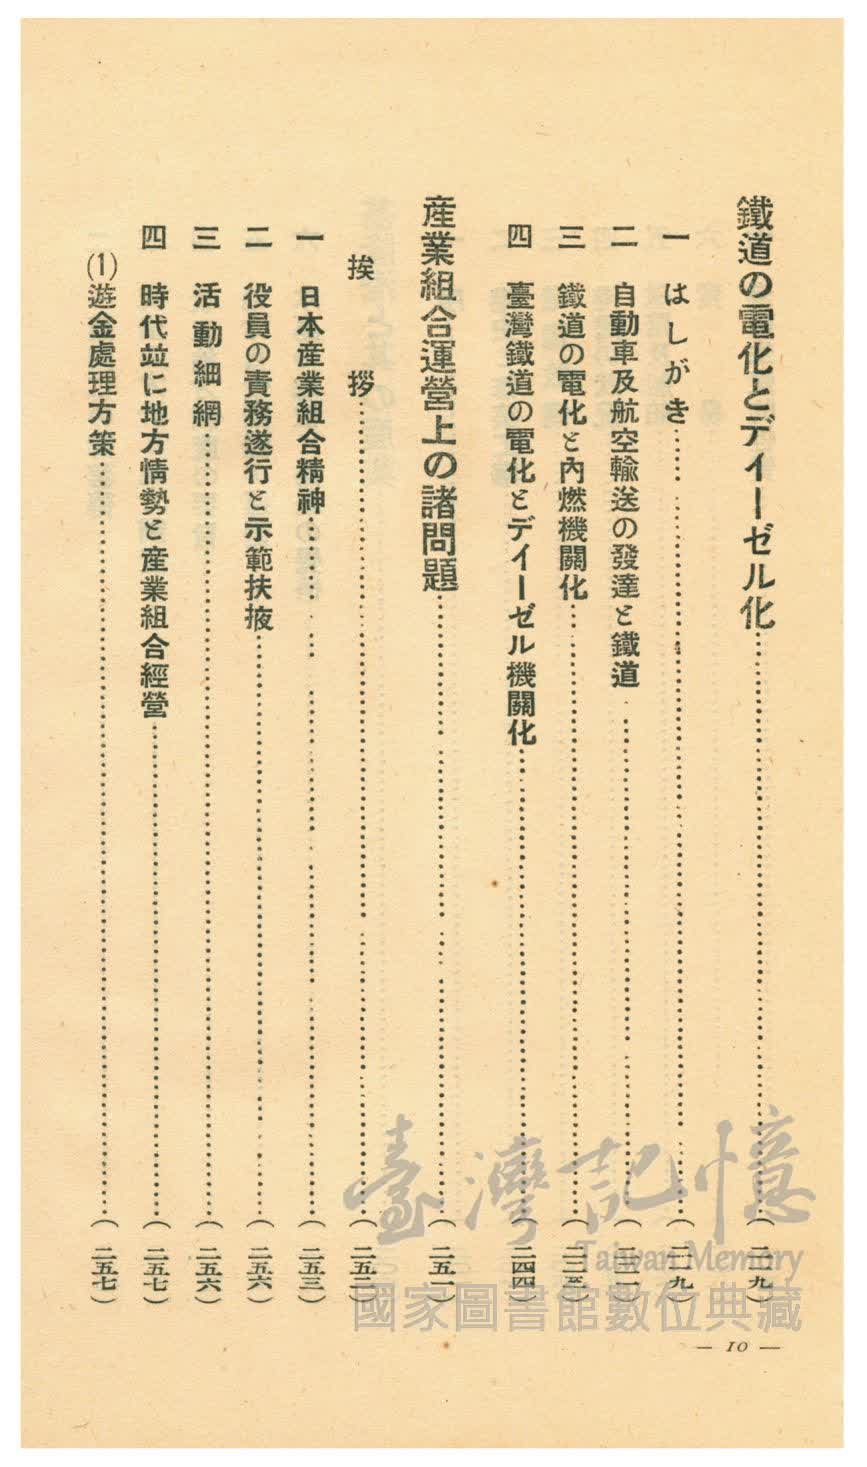 鐵道の電化とデイーゼル化
一 はしがき
二 自動車及航空輸送の發達と鐵道
三 鐵道の電化と內燃機關化
四 臺灣鐵道の電化とデイーゼル機關化……(二四四)
産業組合運營上の諸問題……(二五一)
挨拶……(二五二)
一 日本産業組合精神……(二五三)
二 役員の責務遂行と示範扶掖……(二五六)
三 活動細網……(二五六)
四 時代竝に地方情勢と産業組合經營……(二五七)
(1)遊金處理方策……(二五七)
— 10 —
臺灣記憶
Taiwan Memory
國家圖書館數位典藏